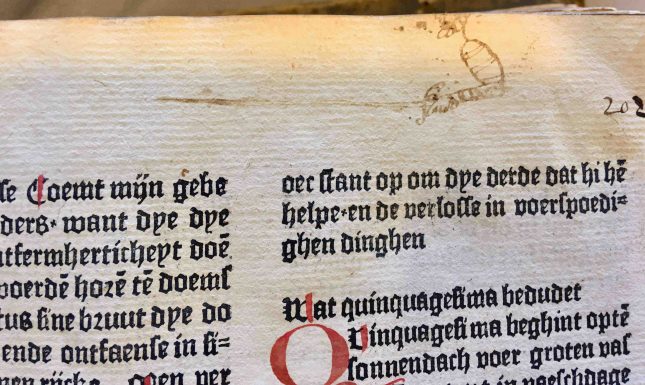 202
se Coemt mijn gebe
ders· want dye dye
ntfermherticheyt doē
woerdē horē tē doems
tus sine bruut dye do
ende ontfaense in si=
oec stant op om dye derde dat hi hē
helpe·en de verlosse in voerspoedi=
ghen dinghen
Wat quinquagesima bedudet
Quinquagesima beghint optē
sonnendach voer groten vas